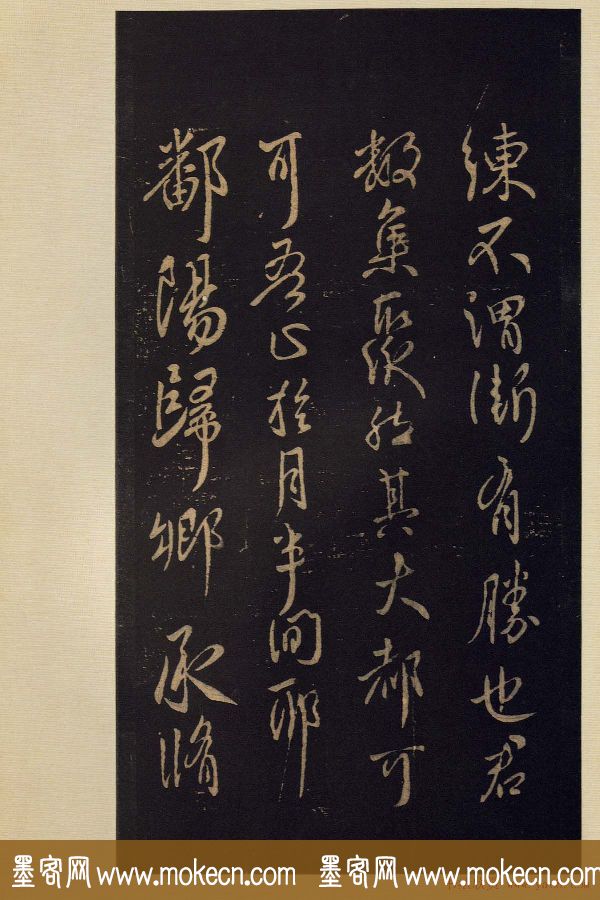 練不謂漸有勝也君
數集聚然其大都可
可吾於月半間耶
鄱陽歸鄉承脩
墨客网 www.mokecn.com 墨客网 www.mokecn.com